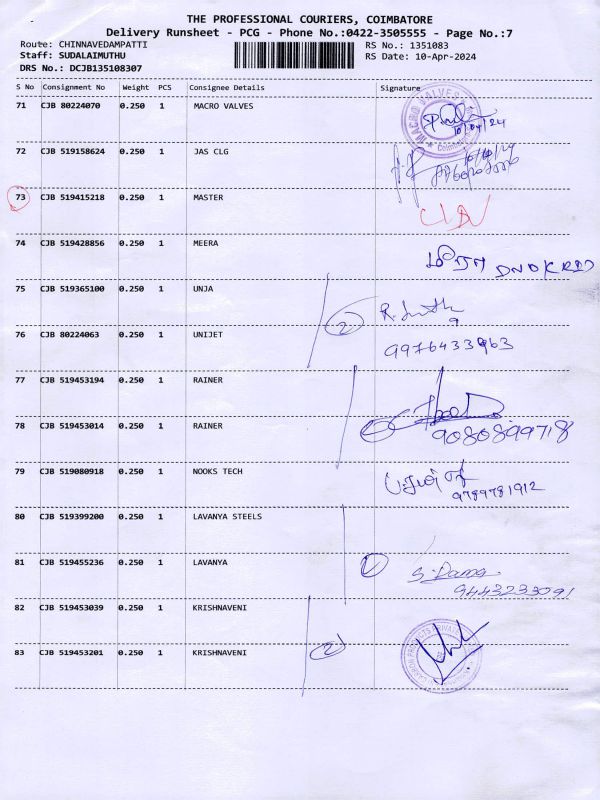 THE PROFESSIONAL COURIERS, COIMBATORE
Delivery Runsheet - PCG - Phone No.:0422-3505555 - Page No.:7
Route: CHINNAVEDAMPATTI RS No.: 1351083
Staff: SUDALAIMUTHU RS Date: 10-Apr-2024
DRS No.: DCJB135108307
S No Consignment No Weight PCS Consignee Details Signature
71 CJB 80224070 0.250 1 MACRO VALVES
10/04/24
72 CJB 519158624 0.250 1 JAS CLG
73 CJB 519415218 0.250 1 MASTER
74 CJB 519428856 0.250 1 MEERA
மீரா
75 CJB 519365100 0.250 1 UNJA
2
76 CJB 80224063 0.250 1 UNIJET
9976433963
77 CJB 519453194 0.250 1 RAINER
78 CJB 519453014 0.250 1 RAINER
9080899718
79 CJB 519080918 0.250 1 NOOKS TECH
9789781912
80 CJB 519399200 0.250 1 LAVANYA STEELS
81 CJB 519455236 0.250 1 LAVANYA
S. Rama
9443233091
82 CJB 519453039 0.250 1 KRISHNAVENI
2
83 CJB 519453201 0.250 1 KRISHNAVENI